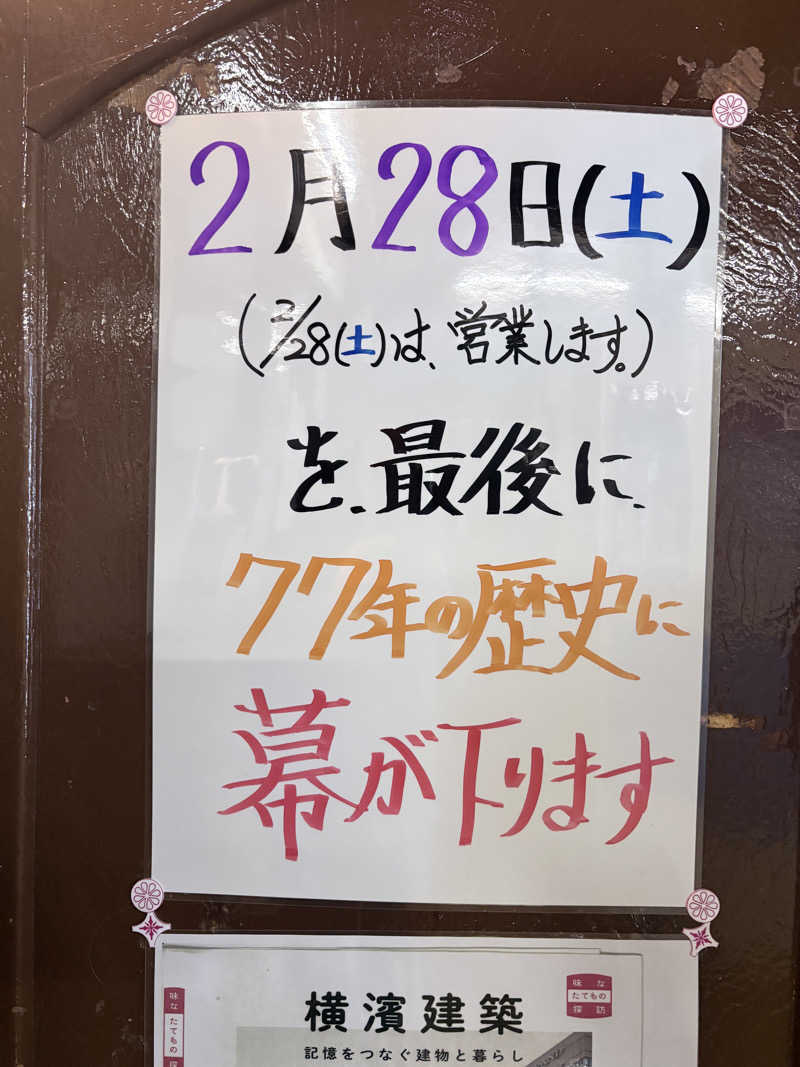 2月28日(土)
(2/28(土)は、営業します。)
を、最後に、
77年の歴史に
幕が下ります
味な
たてもの
探
横濱建築
記憶をつなぐ建物と暮らし
味な
たてもの
探訪